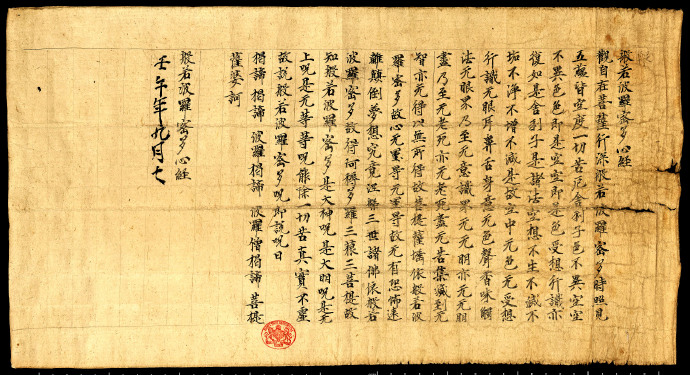 般若波羅蜜多心經
觀自在菩薩行深般若波羅蜜多時照見
五蘊皆空度一切苦厄舍利子色不異空空
不異色色即是空空即是色受想行識亦
復如是舍利子是諸法空想不生不滅不
垢不淨不增不減是故空中无色无受想
行識无眼耳鼻舌身意无色聲香味觸
法无眼界乃至无意識界无无明亦无无明
盡乃至无老死亦无老死盡无苦集滅道无
智亦无得以無所得故菩提薩埵依般若波
羅蜜多故心无罣导无罣导故无有恐怖遠
離顛倒夢想究竟涅槃三世諸佛依般若
波羅蜜多故得阿耨多羅三藐三菩提故
知般若波羅蜜多是大神呪是大明呪是无
上呪是无等等呪能除一切苦真實不虛
故說般若波羅蜜多呪即說呪曰
揭諦揭諦 波羅揭諦 波羅僧揭諦 菩提
薩婆訶
般若波羅蜜多心經
壬午年九月七